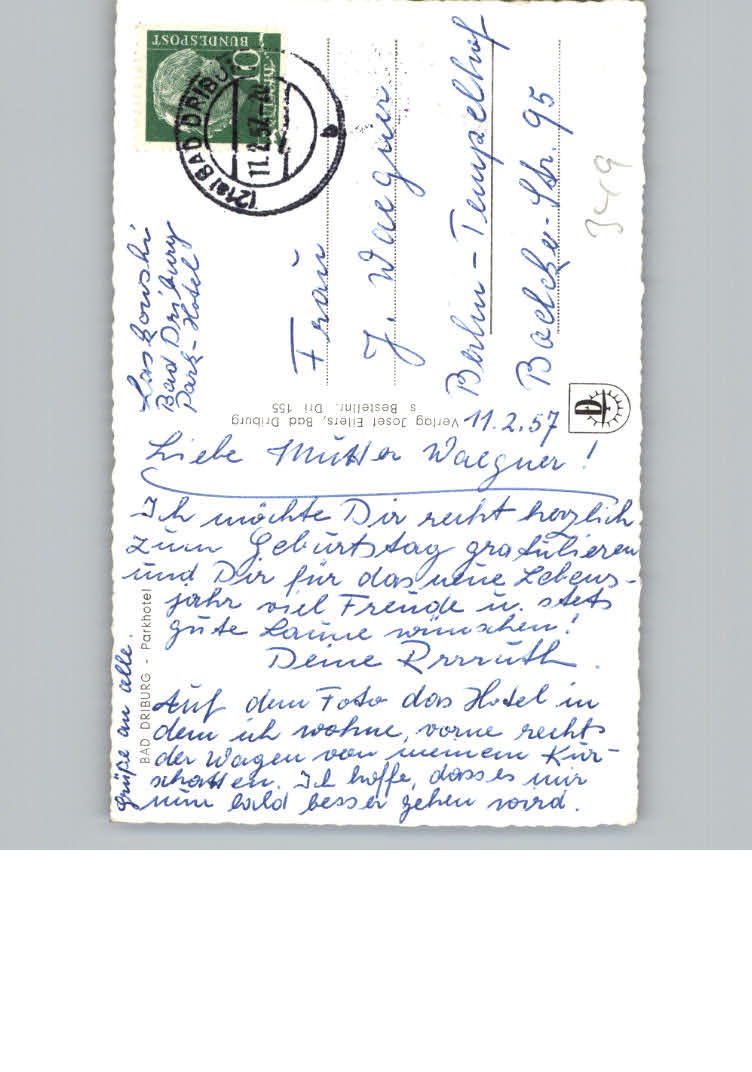 BUNDESPOST
10
(21a) BAD DRIBURG
11.2.57
Laskowski
Bad Driburg
Park-Hotel
Frau
J. Waegner
Berlin-Tempelhof
Boelcke-Str. 95
349
Verlag Josef Eilers, Bad Driburg
s Bestellnr. Dri 155
11.2.57
Liebe Mutter Waegner!
Ich möchte Dir recht herzlich
zum Geburtstag gratulieren
und Dir für das neue Lebens-
jahr viel Freude u. stets
gute Laune wünschen!
Deine Rrrruth.
Auf dem Foto das Hotel in
dem ich wohne, vorne rechts
der Wagen von meinem Kur-
schatten. Ich hoffe, dass es mir
nun bald besser gehen wird.
Grüße an alle.
BAD DRIBURG - Parkhotel